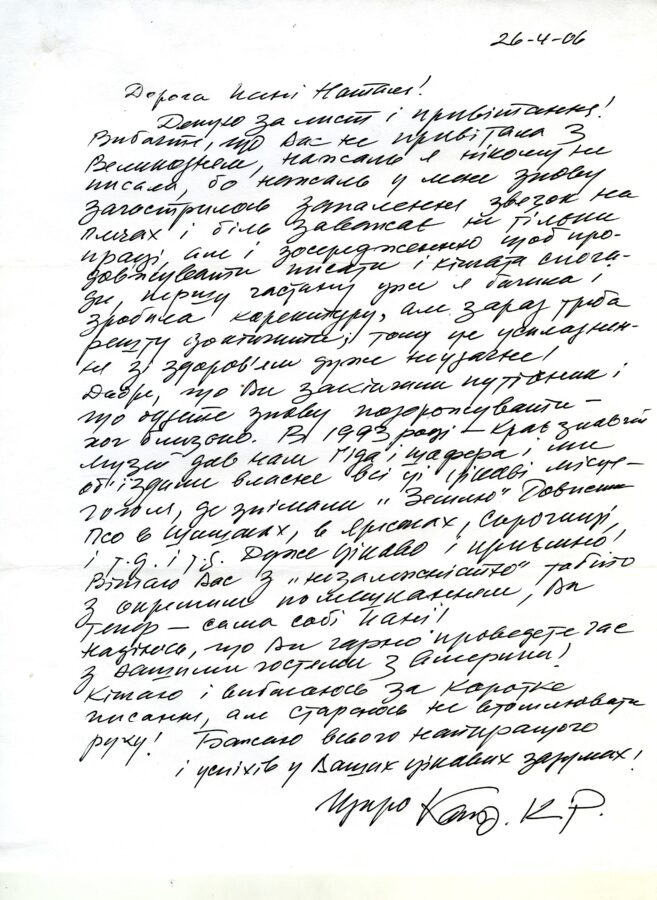 26-4-06
Дорога Пані Наталя!
Дякую за лист і привітання!
Вибачте, що Вас не привітала з
Великоднем, нажаль я нікому не
писала, бо нажаль у мене знову
загострилось запалення звязок на
плечах і біль заважає не тільки
праці, але і зосередженню щоб про-
довжувати писати і кінчати спога-
ди, першу частину уже я бачила і
зробила коректуру, але зараз треба
решту закінчити; тому це ускладнен-
ня зі здоров'ям дуже неудачне!
Добре, що Ви закінчили путівник і
що будете знову подорожувати –
хоч близько. В 1993 році – Краєзнавчий
музей дав нам гіда і шофера і ми
об'їздили власне всі ці цікаві місце-
, де знімали "Землю" Довженко
Псо в , в Яреськах, Сорочинці,
і т.д. і т.д. Дуже цікаво і приємно!
Вітаю Вас з "незалежністю" тобто
з окремим помешканням, Ви
тепер – сама собі Пані!
Надіюсь, що Ви гарно проведете час
з Вашими гостями з Америки!
Кінчаю і вибачаюсь за коротке
писання, але стараюсь не втомлювати
руку! Бажаю всього найкращого
і успіхів у Ваших цікавих задумах!
Щиро К.Р.